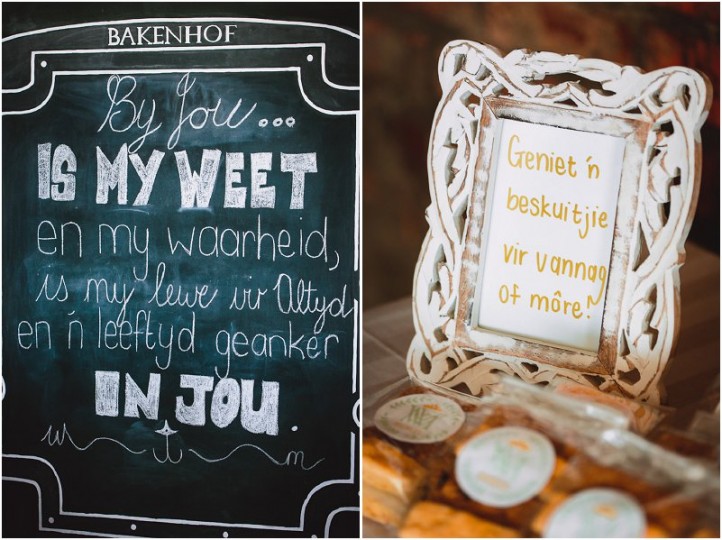 BAKENHOF
By Jou...
IS MY WEET
en my waarheid,
is my lewe vir Altyd
en 'n leeftyd geanker
IN JOU.
w m
Geniet 'n
beskuitjie
vir vannag
of môre!